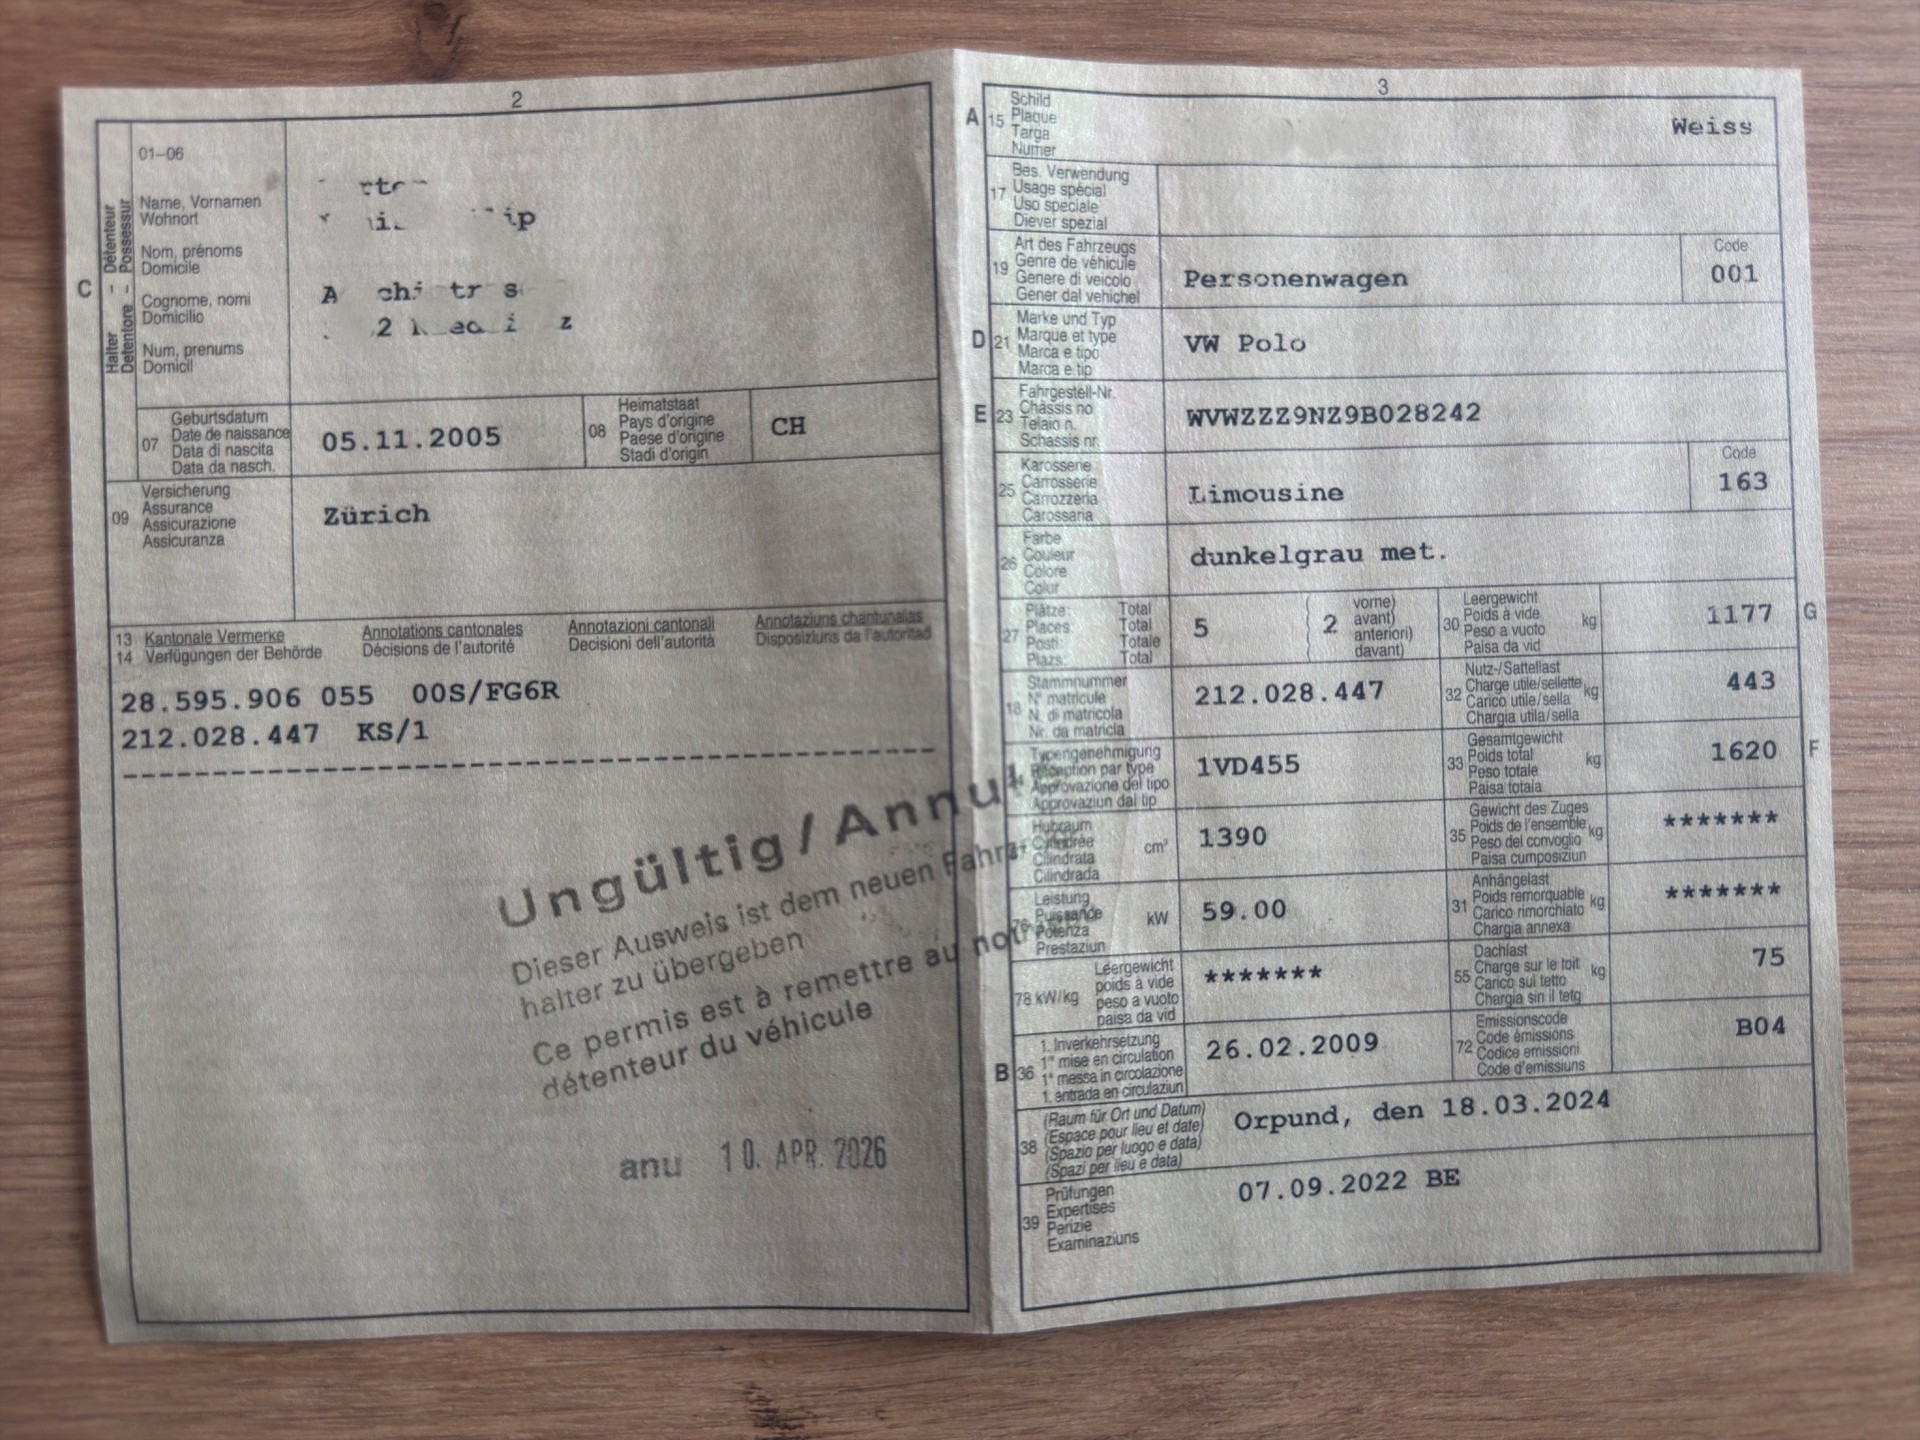 2
01–06
Name, Vornamen
Wohnort
Nom, prénoms
Domicile
Cognome, nomi
Domicilio
Num, prenums
Domicil
C
Halter - Détenteur
Detentore - Possessur
07
Geburtsdatum
Date de naissance
Data di nascita
Data da nasch.
05.11.2005
08
Heimatstaat
Pays d'origine
Paese d'origine
Stadi d'origin
CH
09
Versicherung
Assurance
Assicurazione
Assicuranza
Zürich
13 Kantonale Vermerke Annotations cantonales Annotazioni cantonali Annotaziuns chantunalas
14 Verfügungen der Behörde Décisions de l'autorité Decisioni dell'autorità Disposiziuns da l'autoritad
28.595.906 055 00S/FG6R
212.028.447 KS/1
Ungültig/Annul
Dieser Ausweis ist dem neuen Fahrz
halter zu übergeben
Ce permis est à remettre au
détenteur du véhicule
anu 10. APR. 2026
3
A 15
Schild
Plaque
Targa
Numer
Weiss
17
Bes. Verwendung
Usage spécial
Uso speciale
Diever spezial
19
Art des Fahrzeugs
Genre de véhicule
Genere di veicolo
Gener dal vehichel
Personenwagen
Code
001
D 21
Marke und Typ
Marque et type
Marca e tipo
Marca e tip
VW Polo
E 23
Fahrgestell-Nr.
Châssis no
Telaio n.
Schassis nr.
WVWZZZ9NZ9B028242
25
Karosserie
Carrosserie
Carrozzeria
Carossaria
Limousine
Code
163
26
Farbe
Couleur
Colore
Colur
dunkelgrau met.
27
Plätze: Total
Places: Total
Posti: Totale
Plazs: Total
5
( 2 vorne)
( avant)
( anteriori)
( davant)
30
Leergewicht
Poids à vide
Peso a vuoto
Paisa da vid
kg
1177
G
18
Stammnummer
N° matricule
N. di matricola
Nr. da matricla
212.028.447
32
Nutz-/Sattellast
Charge utile/sellette
Carico utile/sella
Chargia utila/sella
kg
443
Typengenehmigung
Réception par type
Approvazione del tipo
Approvaziun dal tip
1VD455
33
Gesamtgewicht
Poids total
Peso totale
Paisa totala
kg
1620
F
Hubraum
Cylindrée
Cilindrata
Cilindrada
cm³
1390
35
Gewicht des Zuges
Poids de l'ensemble
Peso del convoglio
Paisa cumposiziun
kg
*******
76
Leistung
Puissance
Potenza
Prestaziun
kW
59.00
31
Anhängelast
Poids remorquable
Carico rimorchiato
Chargia annexa
kg
*******
78 kW/kg
Leergewicht
poids à vide
peso a vuoto
paisa da vid
*******
55
Dachlast
Charge sur le toit
Carico sul tetto
Chargia sin il tetg
kg
75
B 36
1. Inverkehrsetzung
1re mise en circulation
1a messa in circolazione
1. entrada en circulaziun
26.02.2009
72
Emissionscode
Code émissions
Codice emissioni
Code d'emissiuns
B04
38
(Raum für Ort und Datum)
(Espace pour lieu et date)
(Spazio per luogo e data)
(Spazi per lieu e data)
Orpund, den 18.03.2024
39
Prüfungen
Expertises
Perizie
Examinaziuns
07.09.2022 BE